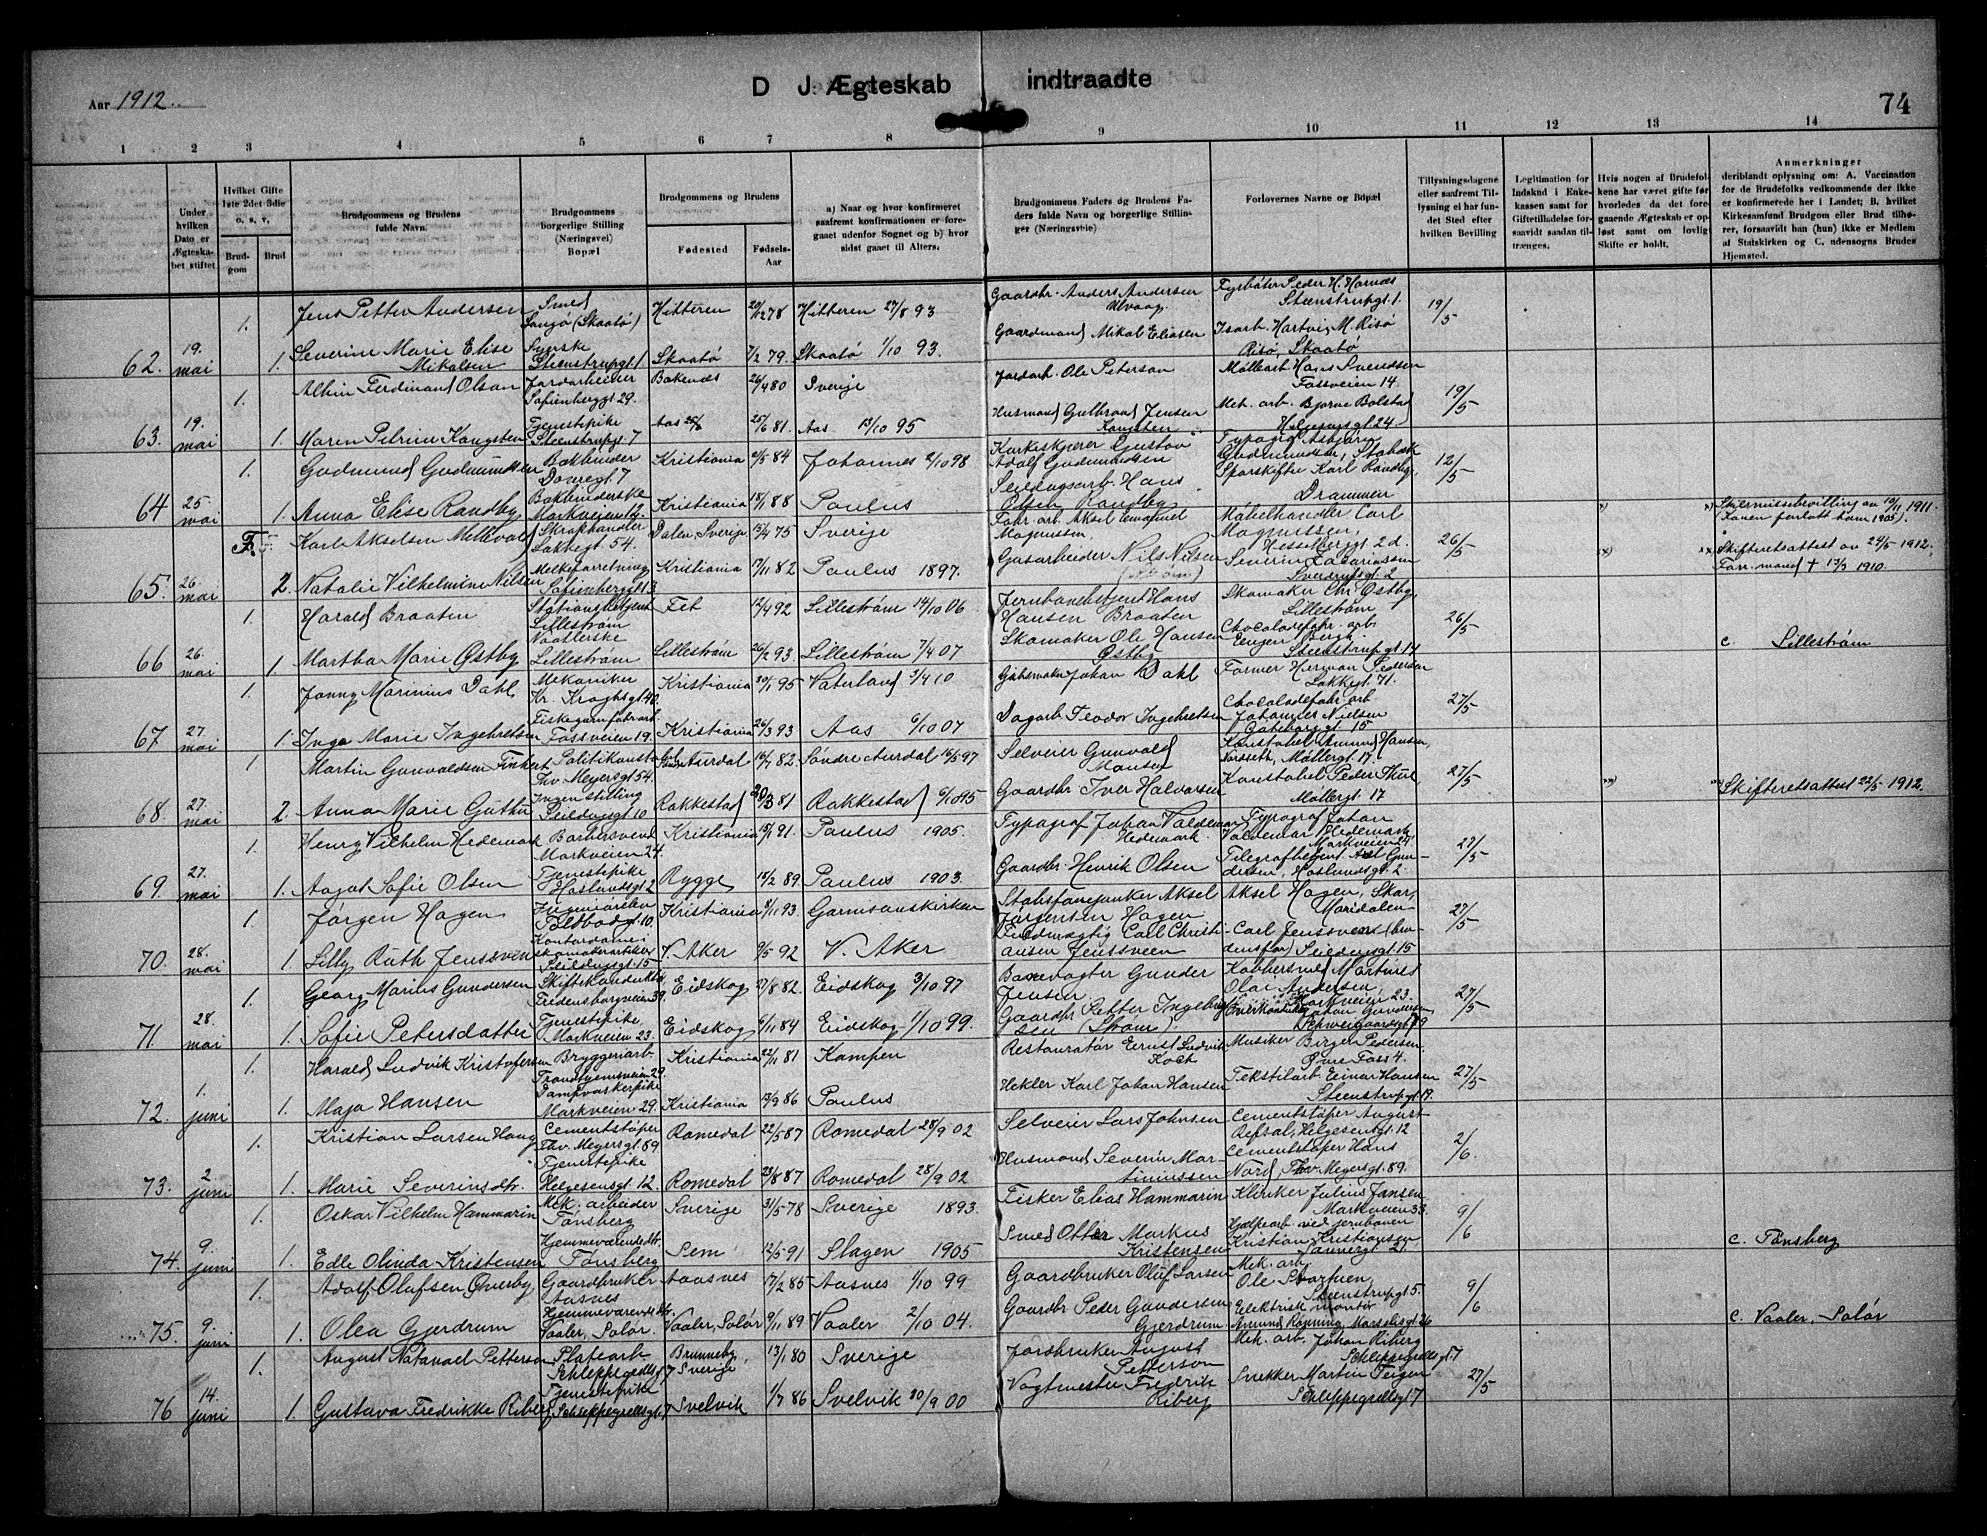 Aar 1912.
D J. Ægteskab indtraadte
74
1 2 3 4 5 6 7 8 9 10 11 12 13 14
Under hvilken Dato er Ægteskabet stiftet
Hvilket Gifte 1ste 2det 3die o. s. v,
Brudgom
Brud
Brudgommens og Brudens fulde Navn.
Brudgommens borgerlige Stilling (Næringsvei) Bopæl
Brudgommens og Brudens
Fødested
Fødsels-Aar
a) Naar og hvor konfirmeret saafremt konfirmationen er foregaaet udenfor Sognet og b) hvor sidst gaaet til Alters.
Brudgommens Faders og Brudens Faders fulde Navn og borgerlige Stillinger (Næringsveie)
Forlovernes Navne og Bopæl
Tillysningsdagene eller saafremt Tillysning ei har fundet Sted efter hvilken Bevilling
Legitimation for Indskud i Enkekassen samt for Giftetilladelse forsaavidt saadan tiltrænges.
Hvis nogen af Brudefolkene har været gifte før hvorledes da det foregaaende Ægteskab er opløst samt om lovlig Skifte er holdt.
Anmerkninger deriblandt oplysning om: A. Vaccination for de Brudefolks vedkommende der ikke er konfirmerede her i Landet; B, hvilket Kirkesamfund Brudgom eller Brud tilhører, forsaavidt han (hun) ikke er Medlem af Statskirken og C. udensogns Brudes Hjemsted.
1. Jens Petter Andersen Smed Sangø (Skaatø) Hitteren 20/12 78 Hitteren 27/8 93 Gaardbr. Anders Andersen Ulvaag. Fyrbøter Peder H. Hornæs Steenstrupgt. 1. 19/5
62. 19. mai 1. Severine Marie Elise Mikalsen Syerske Steenstrupgt. 1 Skaatø 7/2 79. Skaatø 1/10 93. Gaardmand Mikal Eliasen Isarb. Hartvig M. Risø Risø, Skaatø
1. Albin Ferdinand Olson Jordarbeider Sofienberggt. 29. Bokenæs 26/4 80 Sverige Jordarb. Ole Peterson Møllearb. Hans Svendsen Fossveien 14. 19/5
63. 19. mai 1. Maren Petrine Kongsten Tjenestepike Steenstrupgt. 7 Aas 25/6 81. Aas 13/10 95 Husmand Gulbrand Jensen Kongsten Mek. arb. Bjarne Bolstad Helgesensgt. 24.
1. Gudmund Gudmundsen Bokbinder Dovregt. 7 Kristiania 2/5 84 Johannes 2/10 98 Korkeskjærer Gustav Adolf Gudmundsen Typograf Asbjørn Gudmundsen, Stabæk 12/5
64 25 mai 1. Anna Elise Randby Bokbinderske Markveien 12. Kristiania 18/1 88 Paulus Seildugsarb. Hans Olsen Randby Sporskifte Karl Randby, Drammen
F. Karl Akselsen Mellevold Skraphandler Lakkegt. 54. Dalen, Sverige 13/4 75 Sverige Fabr. arb. Aksel Emanuel Magnussen, Møbelhandler Carl Magnussen, Hesselberggt. 2 d. 26/5 x) x) Skilsmissebevilling av 10/11 1911. Konen forlott ham 1905).
65. 26. mai 2. Natalie Vilhelmine Nilsen Melkeforretning Sofienberggt 3. Kristiania 17/11 82 Paulus 1897. Gasarbeider Nils Nilsen Severin Zakariassen Sverdrupsgt. 2 xx) xx) Skifteretsattest av 24/5 1912. Forr. mand † 13/3 1910.
1. Harald Braaten Stationsbetjent Lillestrøm Fet 12/4 92 Lillestrøm 14/10 06 Jernbanebetjent Hans Hansen Braaten Skomaker Chr. Østby, Lillestrøm 26/5
66 26. mai 1. Martha Marie Østby Lillestrøm Lillestrøm 26/2 93 Lillestrøm 7/4 07 Skomaker Ole Hansen Østby Chocoladefabr. arb. Jengen Bergh. Steenstrupgt. 14 c. Lillestrøm
1. Jonny Marinius Dahl Mekaniker Kr. Kroghsgt. 40. Kristiania 30/1 95 Vaterland 3/4 10 Johan Dahl Former Herman Pedersen Lakkegt. 71. 27/5
67 27. mai 1. Inga Marie Ingebretsen Fiskegarnfabr.arb. Fossveien 19. Kristiania 26/3 93 Aas 6/10 07 Dagarb. Teodor Ingebretsen Chocoladefabr. arb. Johannes Nielsen Gøteborggt. 15
1. Martin Gunvaldsen Politikonstabel Thv. Meyersgt 54. Søndre Aurdal 16/7 82. Søndre Aurdal 16/5 97 Selveier Gunvald Konstabel Amund Hansen, Nordseth, Møllergt. 17. 27/5
68 27. mai 2. Anna Marie Guthu Ingen stilling Seildugsgt. 10 Rakkestad 20/3 81 Rakkestad 6/10 95 Gaardbr. Iver Halvorsen Konstabel Peder Thue Møllergt. 17 xx) xx) Skifteretsattest 22/5 1912.
1. Henry Vilhelm Hedemark Barbersvend Markveien 24. Kristiania 13/1 91. Paulus 1905. Typograf Johan Valdemar Hedemark Typograf Johan Valdemar Hedemark Markveien 24. 27/5
69. 27. mai 1. August Sofie Olsen Tjenestepike Haslundsgt. 2 Rygge 18/2 89. Paulus 1903. Gaardbr. Henrik Olsen Telegrafbetjent Axel Gundersen, Haslundsgt. 2.
1. Jørgen Hagen Toldbodgt. 10. Kristiania 8/11 93. Garnisonskirken Stabsfanejunker Aksel Jørgensen Hagen Aksel Hagen, Skar, Maridalen 27/5
70. 28. mai 1. Lilly Ruth Jenssveen Kontordame Seildugsgt. 15 V. Aker 9/5 92 V. Aker Carl Christiansen Jenssveen Carl Jenssveen Seildugsgt. 15
1. Georg Marius Gundersen Fredensborgveien 39. Eidskog 27/8 82. Eidskog 3/10 97 Banevogter Gunder Jensen Kobbersmed Martines Olai Andersen, Markveien 23. 27/5
71. 28. mai 1. Sofie Petersdatter Tjenestepike, Markveien 23. Eidskog 6/11 84 Eidskog 1/10 99. Gaardbr. Petter Ingebrigtsen (Strøm). Schweigaardsgt. 79
1. Harald Ludvik Kristofersen Bryggeriarb. Trondhjemsveien 29. Kristiania 22/11 81 Kampen Restauratør Ernst Ludvik Koch Musiker Birger Pedersen Øvre Foss 4. 27/5
72. 1. juni 1. Maja Hansen Dampvaskerpike Markveien 29. Kristiania 13/9 86 Paulus Hekler Karl Johan Hansen Tekstilarb. Einar Hansen Steenstrupgt. 19.
1. Kristian Larsen Haug Cementstøper Thv. Meyersgt 89 Romedal 22/5 87 Romedal 28/9 02 Selveier Lars Johnsen Cementstøper August Refsal, Helgesensgt. 12 2/6.
73. 2 juni 1. Marie Severinsdtr. Tjenestepike Helgesensgt. 12. Romedal 23/8 87 Romedal 28/9 02 Husmand Severin Martinussen Cementstøper Hans Nord, Thv. Meyersgt. 89.
1. Oskar Vilhelm Hammarin Mek. arbeider Tønsberg Sverige 31/5 78 Sverige 1893. Fisker Elias Hammarin Kliniker Julius Jansen Markveien 33. 9/6
74. 9. juni 1. Edle Olinda Kristensen Hjemmeværende dtr. Tønsberg Sem 12/5 91 Slagen 1905 Smed Otter Markus Kristensen Hjælpearb. ved jernbanen Kristian Kristiansen Tannergt. 21. c. Tønsberg
1. Adolf Olufsen Øverby Gaardbruker Aasnes Aasnes 17/2 85 Aasnes 1/10 99 Gaardbruker Oluf Larsen Mek. arb. Ole Storfuen, Steenstrupgt 5. 9/6
75. 9. juni 1. Olea Gjerdrum Hjemmeværende dtr. Vaaler, Solør. Vaaler, Solør 9/11 89 Vaaler 2/10 04. Gaardbr. Peder Gundersen Gjerdrum Elektrisk montør Amund Rønning, Marselisgt. 26 c. Vaaler, Solør
1. August Natanael Petterson Platearb. Schleppegrellsgt. 7 Brunneby, Sverige 13/1 80 Sverige Jordbruker August Petterson Mek. arb. Johan Riberg Schleppegrellsgt. 7 27/5
76 14. juni 1. Gustava Fredrikke Riberg Tjenestepike Schleppegrellsgt. 7 Svelvik 1/7 86 Svelvik 30/9 00 Vogtmester Fredrik Riberg Snekker Martin Teigen Schleppegrellsgt 7